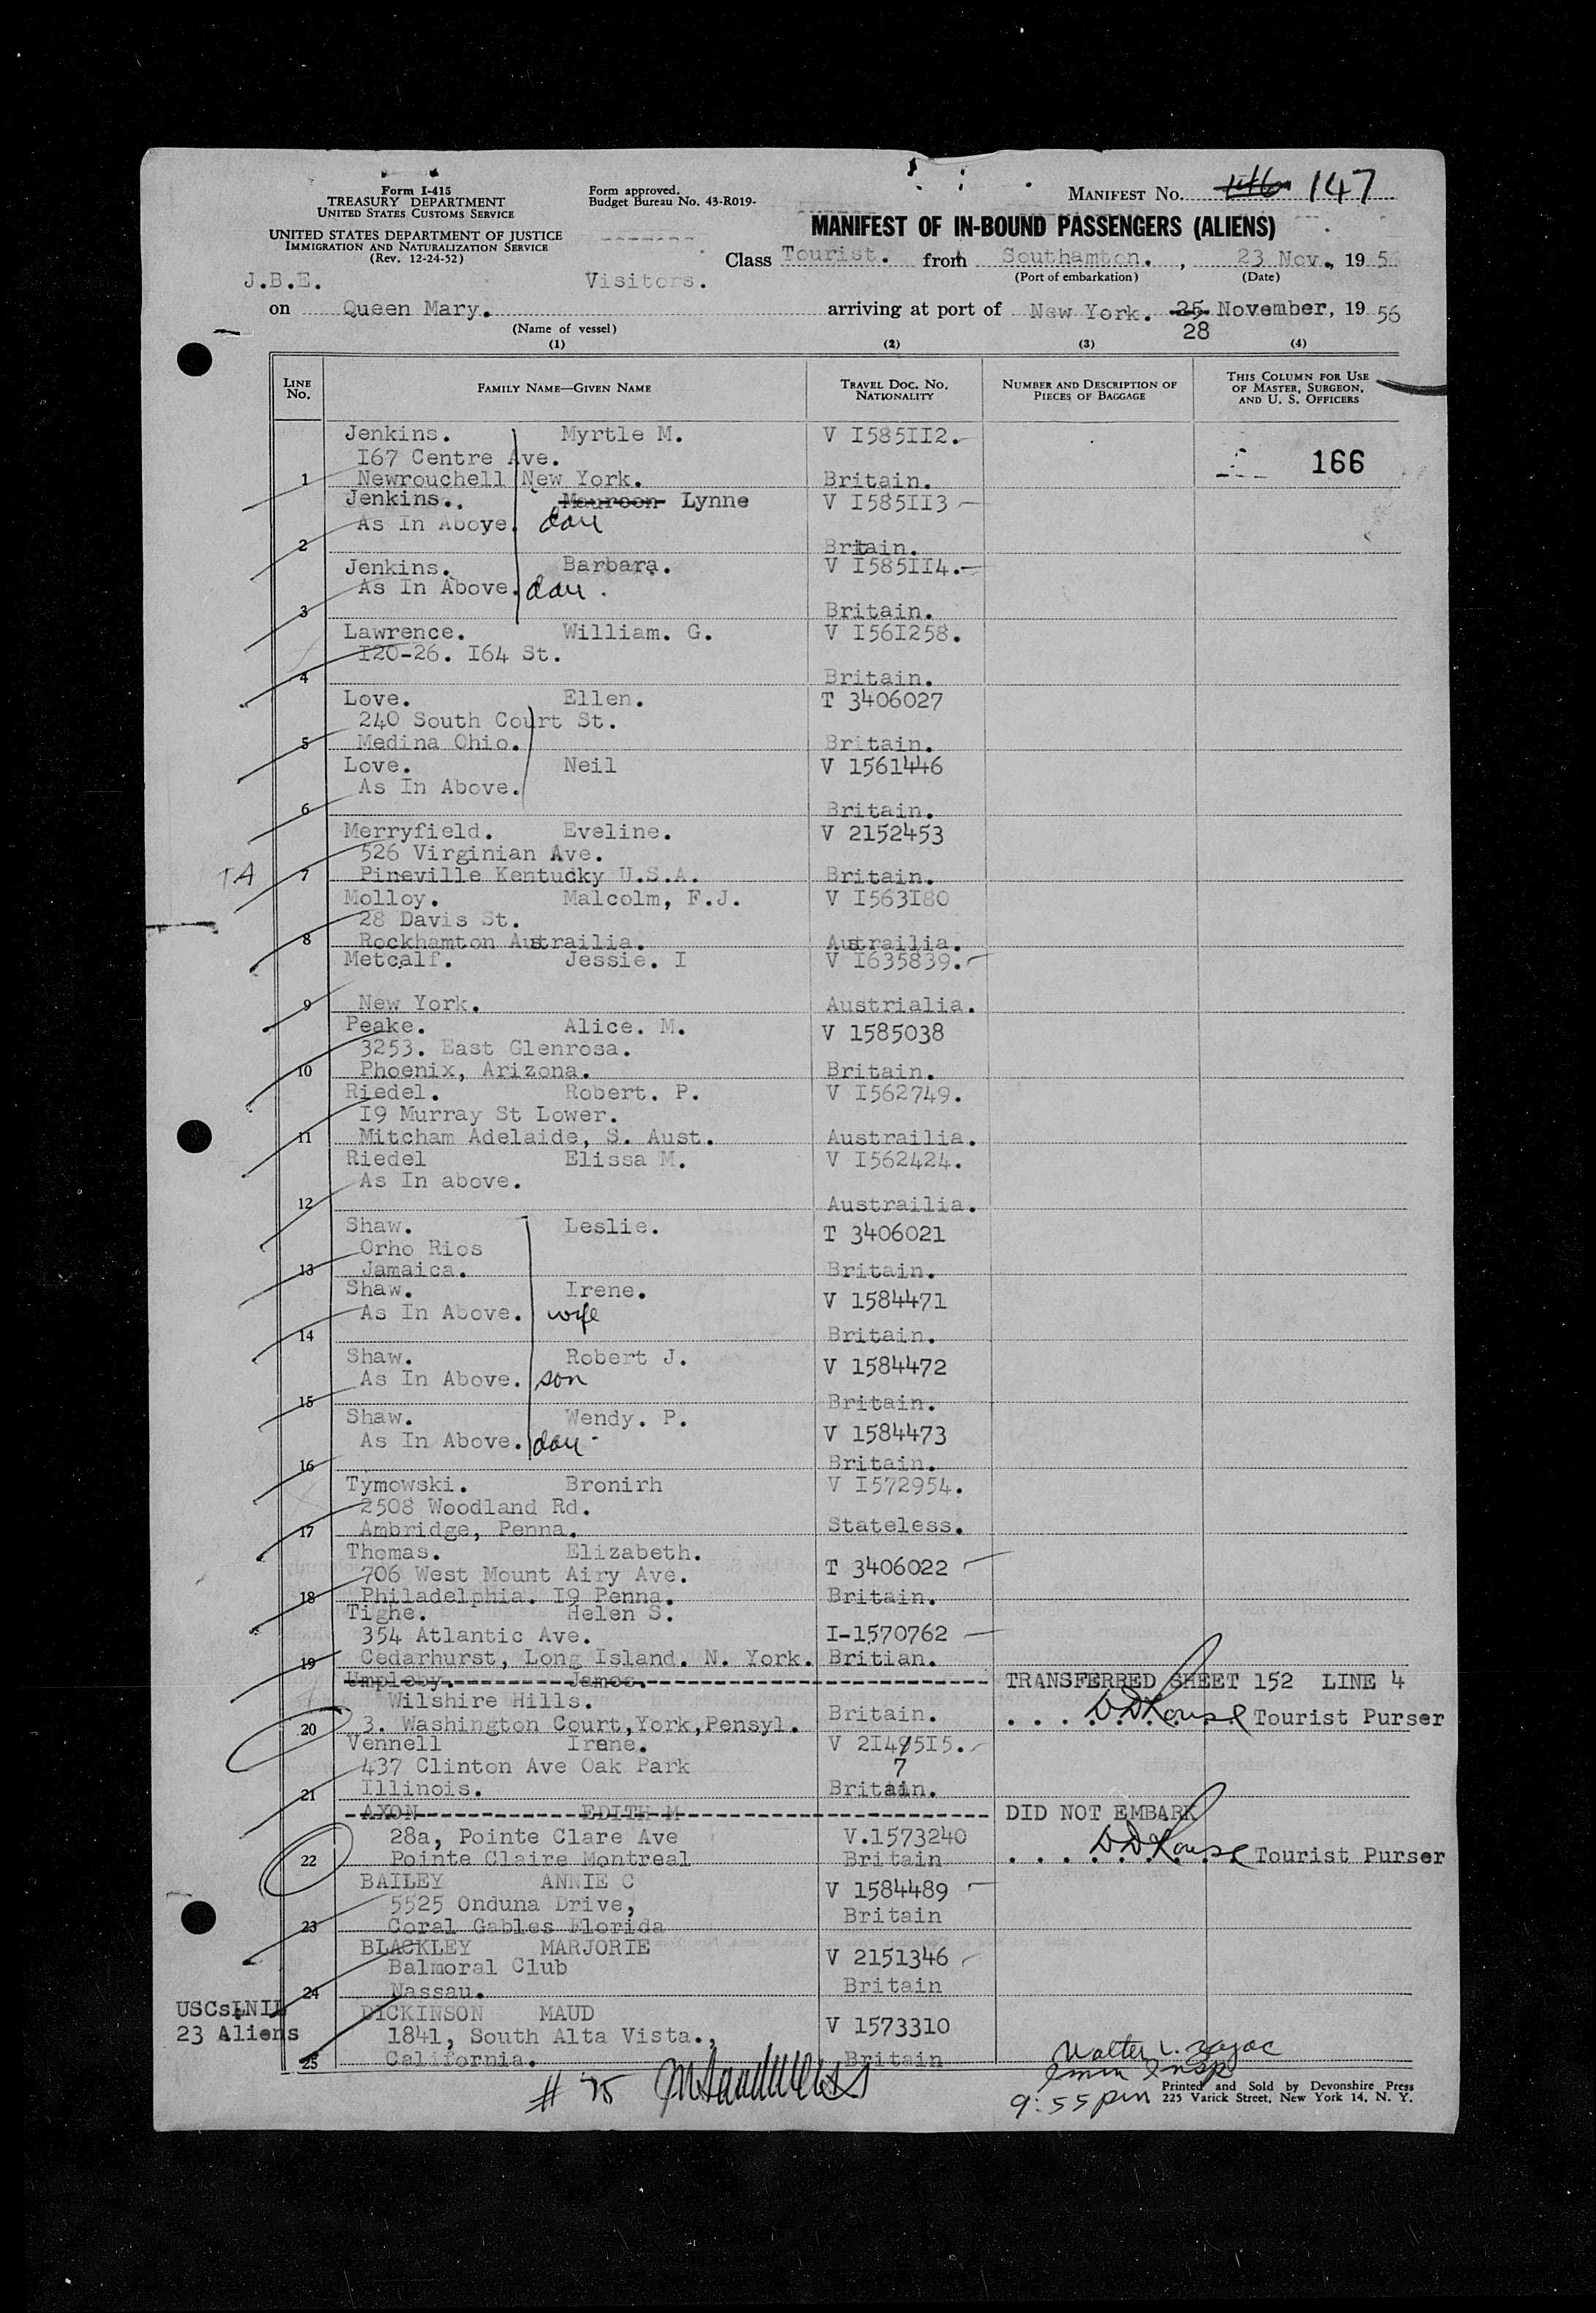 Form I-415
TREASURY DEPARTMENT
UNITED STATES CUSTOMS SERVICE
UNITED STATES DEPARTMENT OF JUSTICE
IMMIGRATION AND NATURALIZATION SERVICE
(Rev. 12-24-52)
Form approved.
Budget Bureau No. 43-R019-
MANIFEST No. 147
MANIFEST OF IN-BOUND PASSENGERS (ALIENS)
Class Tourist. from Southamton. , 23 Nov., 195
(Port of embarkation) (Date)
J.B.E. Visitors.
on Queen Mary. arriving at port of New York. 25 November, 1956
28
(Name of vessel)
(1) (2) (3) (4)
LINE No. FAMILY NAME—GIVEN NAME TRAVEL DOC. No. NATIONALITY NUMBER AND DESCRIPTION OF PIECES OF BAGGAGE THIS COLUMN FOR USE OF MASTER, SURGEON, AND U. S. OFFICERS
Jenkins. Myrtle M. V I585II2.
I67 Centre Ave.
166
1 Newrouchell New York. Britain.
Jenkins. Maureen Lynne V I585II3
As In Above. dau
2 Britain.
Jenkins. Barbara. V I585II4.
As In Above. dau.
3 Britain.
Lawrence. William. G. V I56I258.
I20-26. I64 St.
4 Britain.
Love. Ellen. T 3406027
240 South Court St.
5 Medina Ohio. Britain.
Love. Neil V 1561446
As In Above.
6 Britain.
Merryfield. Eveline. V 2152453
526 Virginian Ave.
TA 7 Pineville Kentucky U.S.A. Britain.
Molloy. Malcolm, F.J. V I563I80
28 Davis St.
8 Rockhamton Austrailia. Austrailia.
Metcalf. Jessie. I V I635839.
9 New York. Austrialia.
Peake. Alice. M. V 1585038
3253. East Glenrosa.
10 Phoenix, Arizona. Britain.
Riedel. Robert. P. V I562749.
I9 Murray St Lower.
11 Mitcham Adelaide, S. Aust. Austrailia.
Riedel Elissa M. V I562424.
As In above.
12 Austrailia.
Shaw. Leslie. T 3406021
Orho Rios
13 Jamaica. Britain.
Shaw. Irene. V 1584471
As In Above. wife
14 Britain.
Shaw. Robert J. V 1584472
As In Above. son
15 Britain.
Shaw. Wendy. P. V 1584473
As In Above. dau
16 Britain.
Tymowski. Bronirh V I572954.
2508 Woodland Rd.
17 Ambridge, Penna. Stateless.
Thomas. Elizabeth. T 3406022
706 West Mount Airy Ave.
18 Philadelphia. I9 Penna. Britain.
Tighe. Helen S.
354 Atlantic Ave. I-1570762
19 Cedarhurst, Long Island. N. York. Britian.
Umpleby. James. TRANSFERRED SHEET 152 LINE 4
Wilshire Hills. Britain.
20 3. Washington Court,York,Pensyl. Tourist Purser
Vennell Irene. V 2I495I5.
437 Clinton Ave Oak Park 7
21 Illinois. Britain.
AXON EDITH M DID NOT EMBARK
28a, Pointe Clare Ave V.1573240
22 Pointe Claire Montreal Britain Tourist Purser
BAILEY ANNIE C V 1584489
5525 Onduna Drive, Britain
23 Coral Gables Florida
BLACKLEY MARJORIE V 2151346
Balmoral Club
24 Nassau. Britain
USCs NIL
DICKINSON MAUD V 1573310
23 Aliens 1841, South Alta Vista.,
25 California. Britain
Walter L. Zajac
Imm Insp
9:55 pm
Printed and Sold by Devonshire Press
225 Varick Street, New York 14, N. Y.